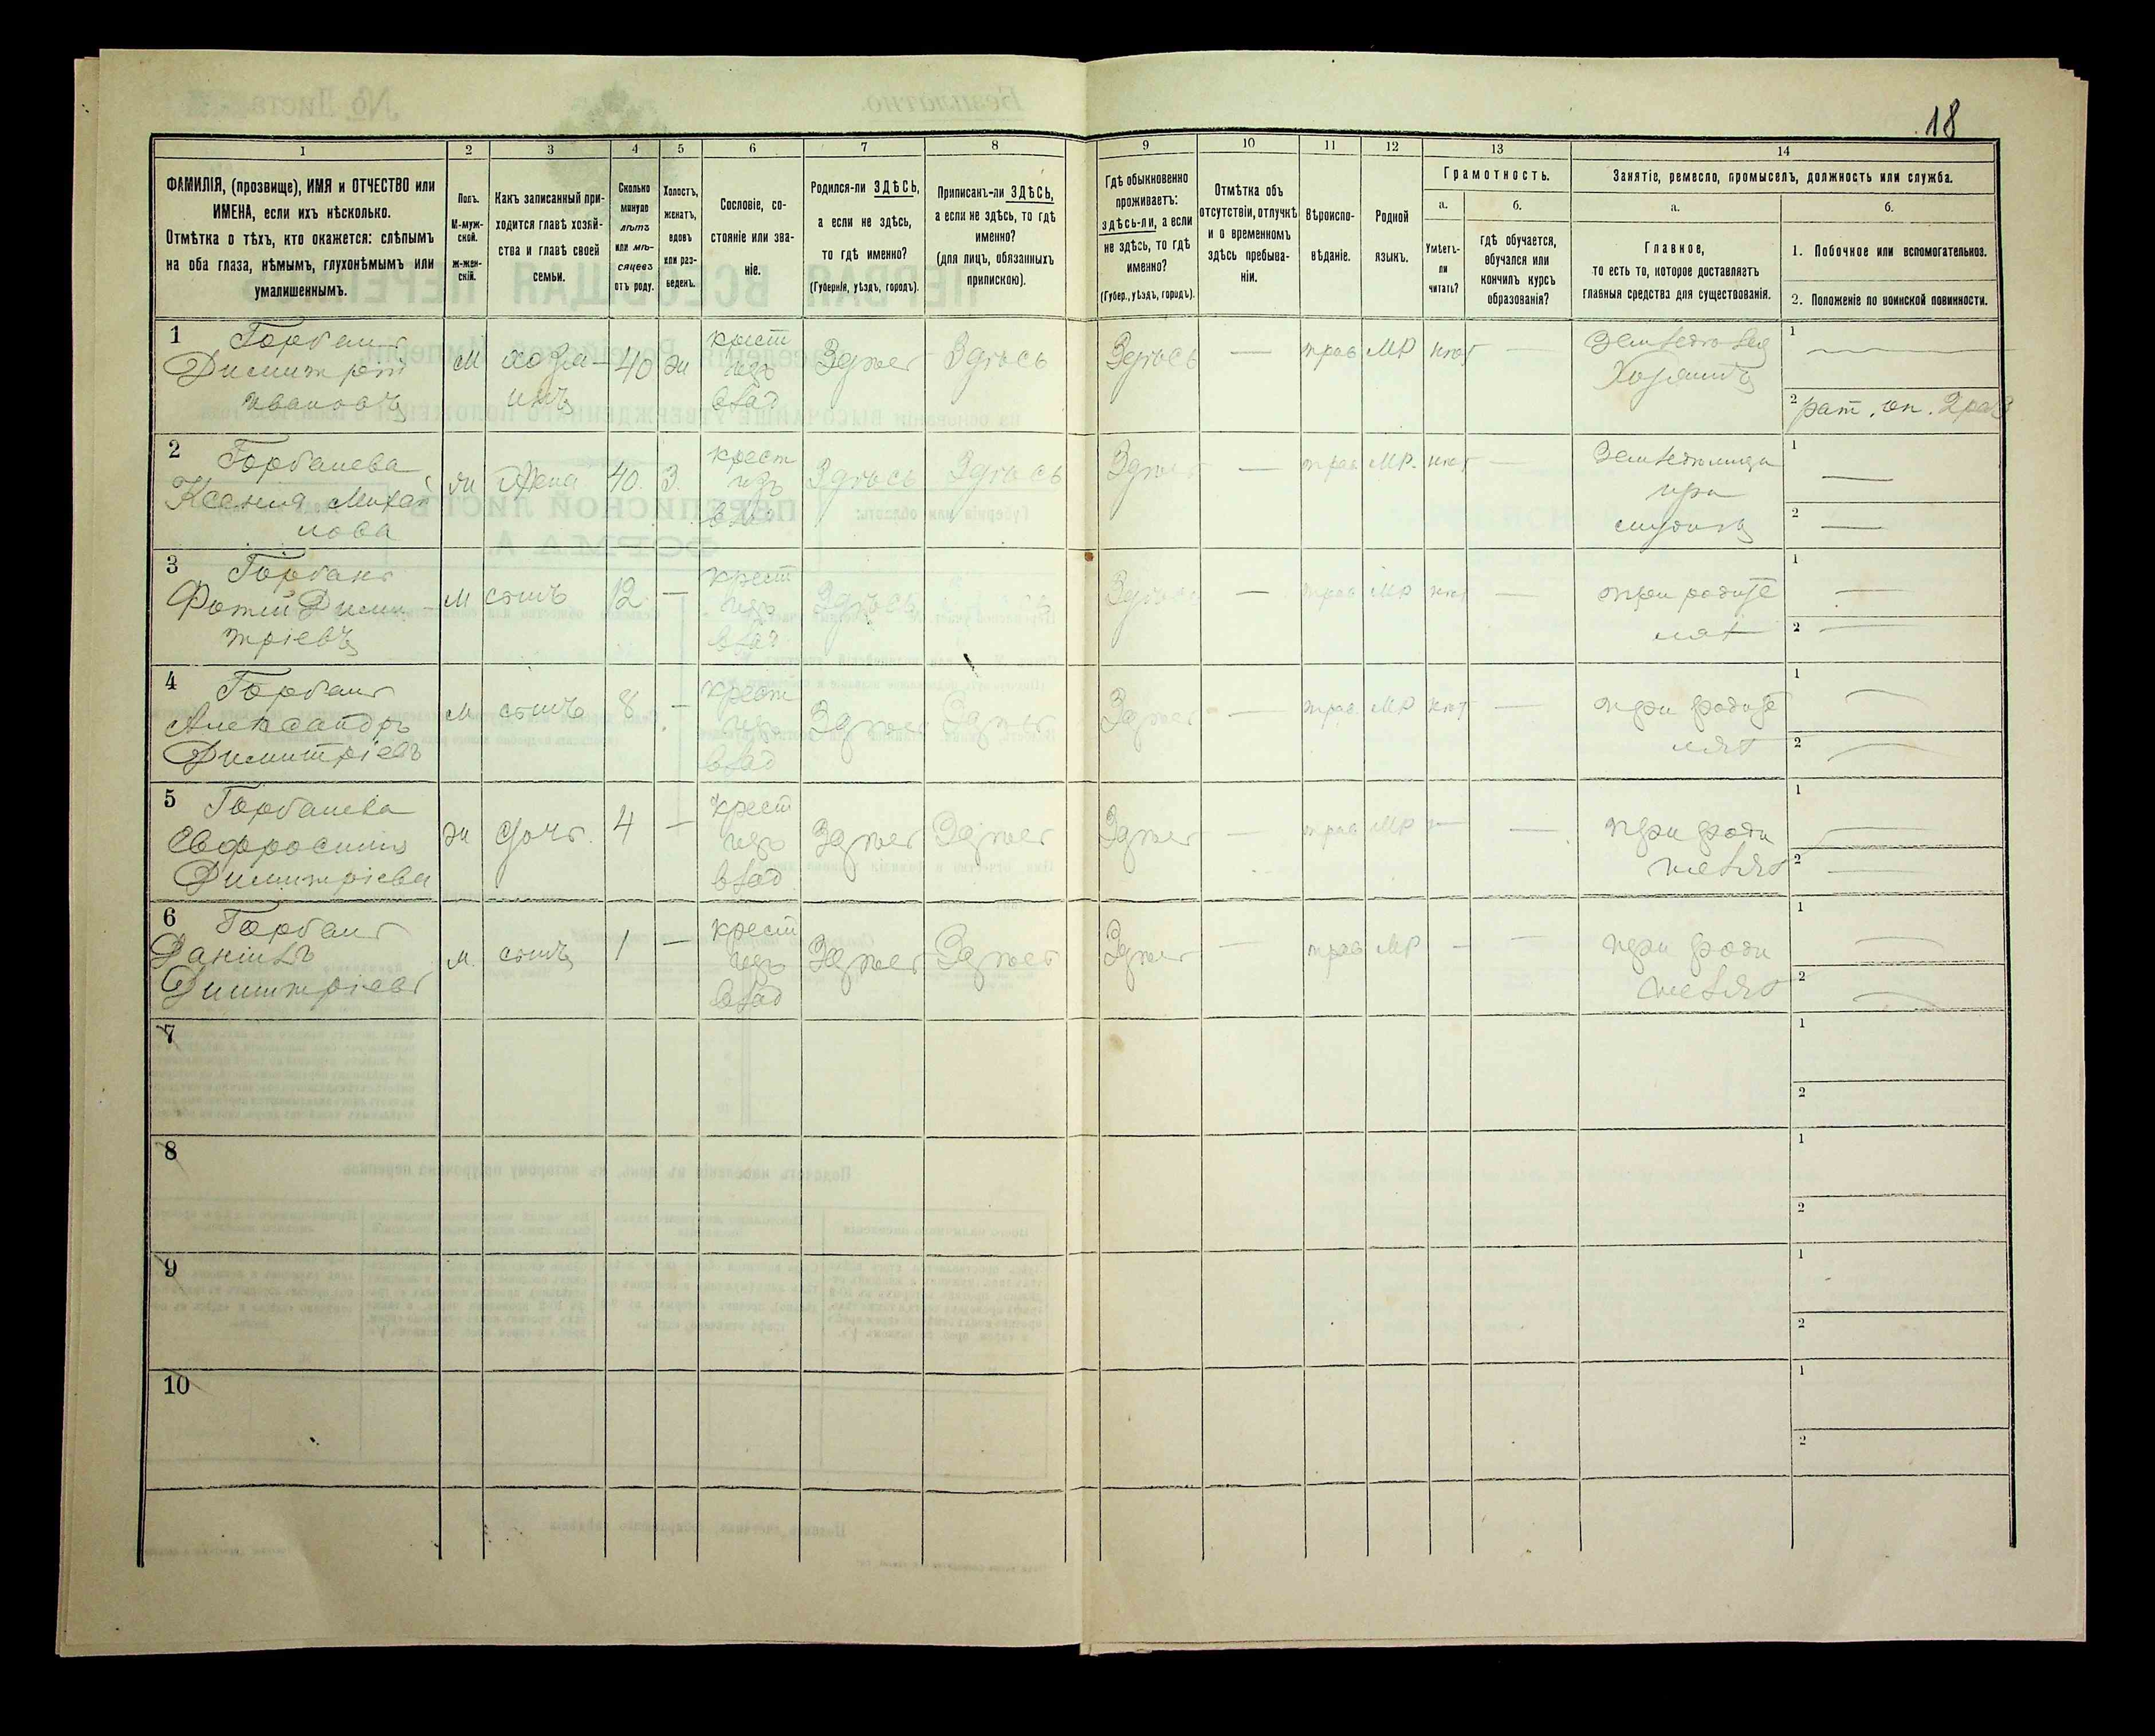 18
1
2
3
4
5
6
7
8
9
10
11
12
13
14
ФАМИЛІЯ, (прозвище), ИМЯ и ОТЧЕСТВО или
ИМЕНА, если ихъ нѣсколько.
Отмѣтка о тѣхъ, кто окажется: слѣпымъ
на оба глаза, нѣмымъ, глухонѣмымъ или
умалишеннымъ.
Полъ.
М-муж-
ской.
ж-жен-
скій.
Какъ записанный при-
ходится главѣ хозяй-
ства и главѣ своей
семьи.
Сколько
минуло
лѣтъ
или мѣ-
сяцевъ
отъ роду.
Холостъ,
женатъ,
вдовъ
или раз-
веденъ.
Сословіе, со-
стояніе или зва-
ніе.
Родился-ли ЗДѢСЬ,
а если не здѣсь,
то гдѣ именно?
(Губернія, уѣздъ, городъ).
Приписанъ-ли ЗДѢСЬ,
а если не здѣсь, то гдѣ
именно?
(для лицъ, обязанныхъ
припискою).
Гдѣ обыкновенно
проживаетъ:
здѣсь-ли, а если
не здѣсь, то гдѣ
именно?
(Губер., уѣздъ, городъ).
Отмѣтка объ
отсутствіи, отлучкѣ
и о временномъ
здѣсь пребыва-
ніи.
Вѣроиспо-
вѣданіе.
Родной
языкъ.
Грамотность.
а.
Умѣетъ-
ли
читать?
б.
гдѣ обучается,
обучался или
кончилъ курсъ
образованія?
Занятіе, ремесло, промыселъ, должность или служба.
а.
Главное,
то есть то, которое доставляетъ
главныя средства для существованія.
б.
1. Побочное или вспомогательное.
2. Положеніе по воинской повинности.
1 Горбань
Димитрій
Ивановъ
м
хозя-
инъ
40
ж
крест
изъ
влад
Здѣсь
Здѣсь
Здѣсь
—
прав
МР
нѣт
—
Хозяинъ
1
2 рат. оп. 2 раз
2 Горбанева
Ксенія Михай
лова
ж
Жена
40.
З.
крест
изъ
влад
Здѣсь
Здѣсь
Здѣсь
—
прав
МР.
нѣт
—
при
1 —
2 —
3 Горбань
Фотій Дими
тріевъ
м
сынъ
12
—
крест
изъ
влад
Здѣсь
Здѣсь
Здѣсь
—
прав
МР
нѣт
—
при родите
лях
1 —
2 —
4 Горбань
Александръ
Димитріевъ
м
сынъ
8
—
крест
изъ
влад
Здѣсь
Здѣсь
Здѣсь
—
прав
МР
нѣт
—
при родите
лях
1 —
2 —
5 Горбанева
Евфросинія
Димитріева
ж
дочь.
4
—
крест
изъ
влад
Здѣсь
Здѣсь
Здѣсь
—
прав
МР
—
—
при роди
телях
1 —
2 —
6 Горбань
Даніилъ
Димитріевъ
м.
сынъ
1
—
крест
изъ
влад
Здѣсь
Здѣсь
Здѣсь
—
прав
МР
—
—
при роди
телях
1 —
2 —
7
1
2
8
1
2
9
1
2
10
1
2